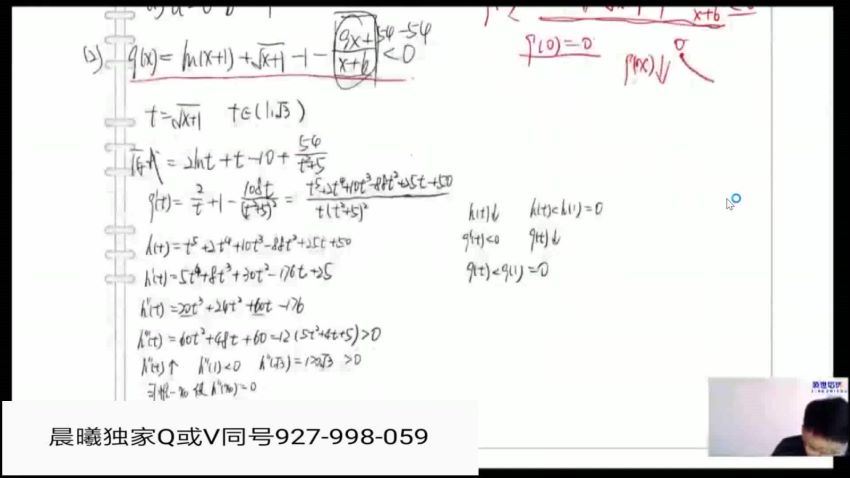 (2) φ(x)=ln(x+1)+√x+1-1-9x+54-54/x+6<0
x+6 ≤0
φ(0)=0
φ(x)↓
t=√x+1 t∈(1,√3)
=2lnt+t-10+54/t²+5
φ'(t)=2/t+1-108t/(t²+5)²=t⁵+2t⁴+10t³-88t²+25t+50/t(t²+5)²
h(t)=t⁵+2t⁴+10t³-88t²+25t+50
h'(t)=5t⁴+8t³+30t²-176t+25
h''(t)=20t³+24t²+60t-176
h'''(t)=60t²+48t+60=12(5t²+4t+5)>0
h''(t)↑ h''(1)<0 h''(√3)=120√3 >0
h(t)↓ h(t)<h(1)=0
φ'(t)<0 φ(t)↓
φ(t)<φ(1)=0
晨曦独家Q或V同号927-998-059